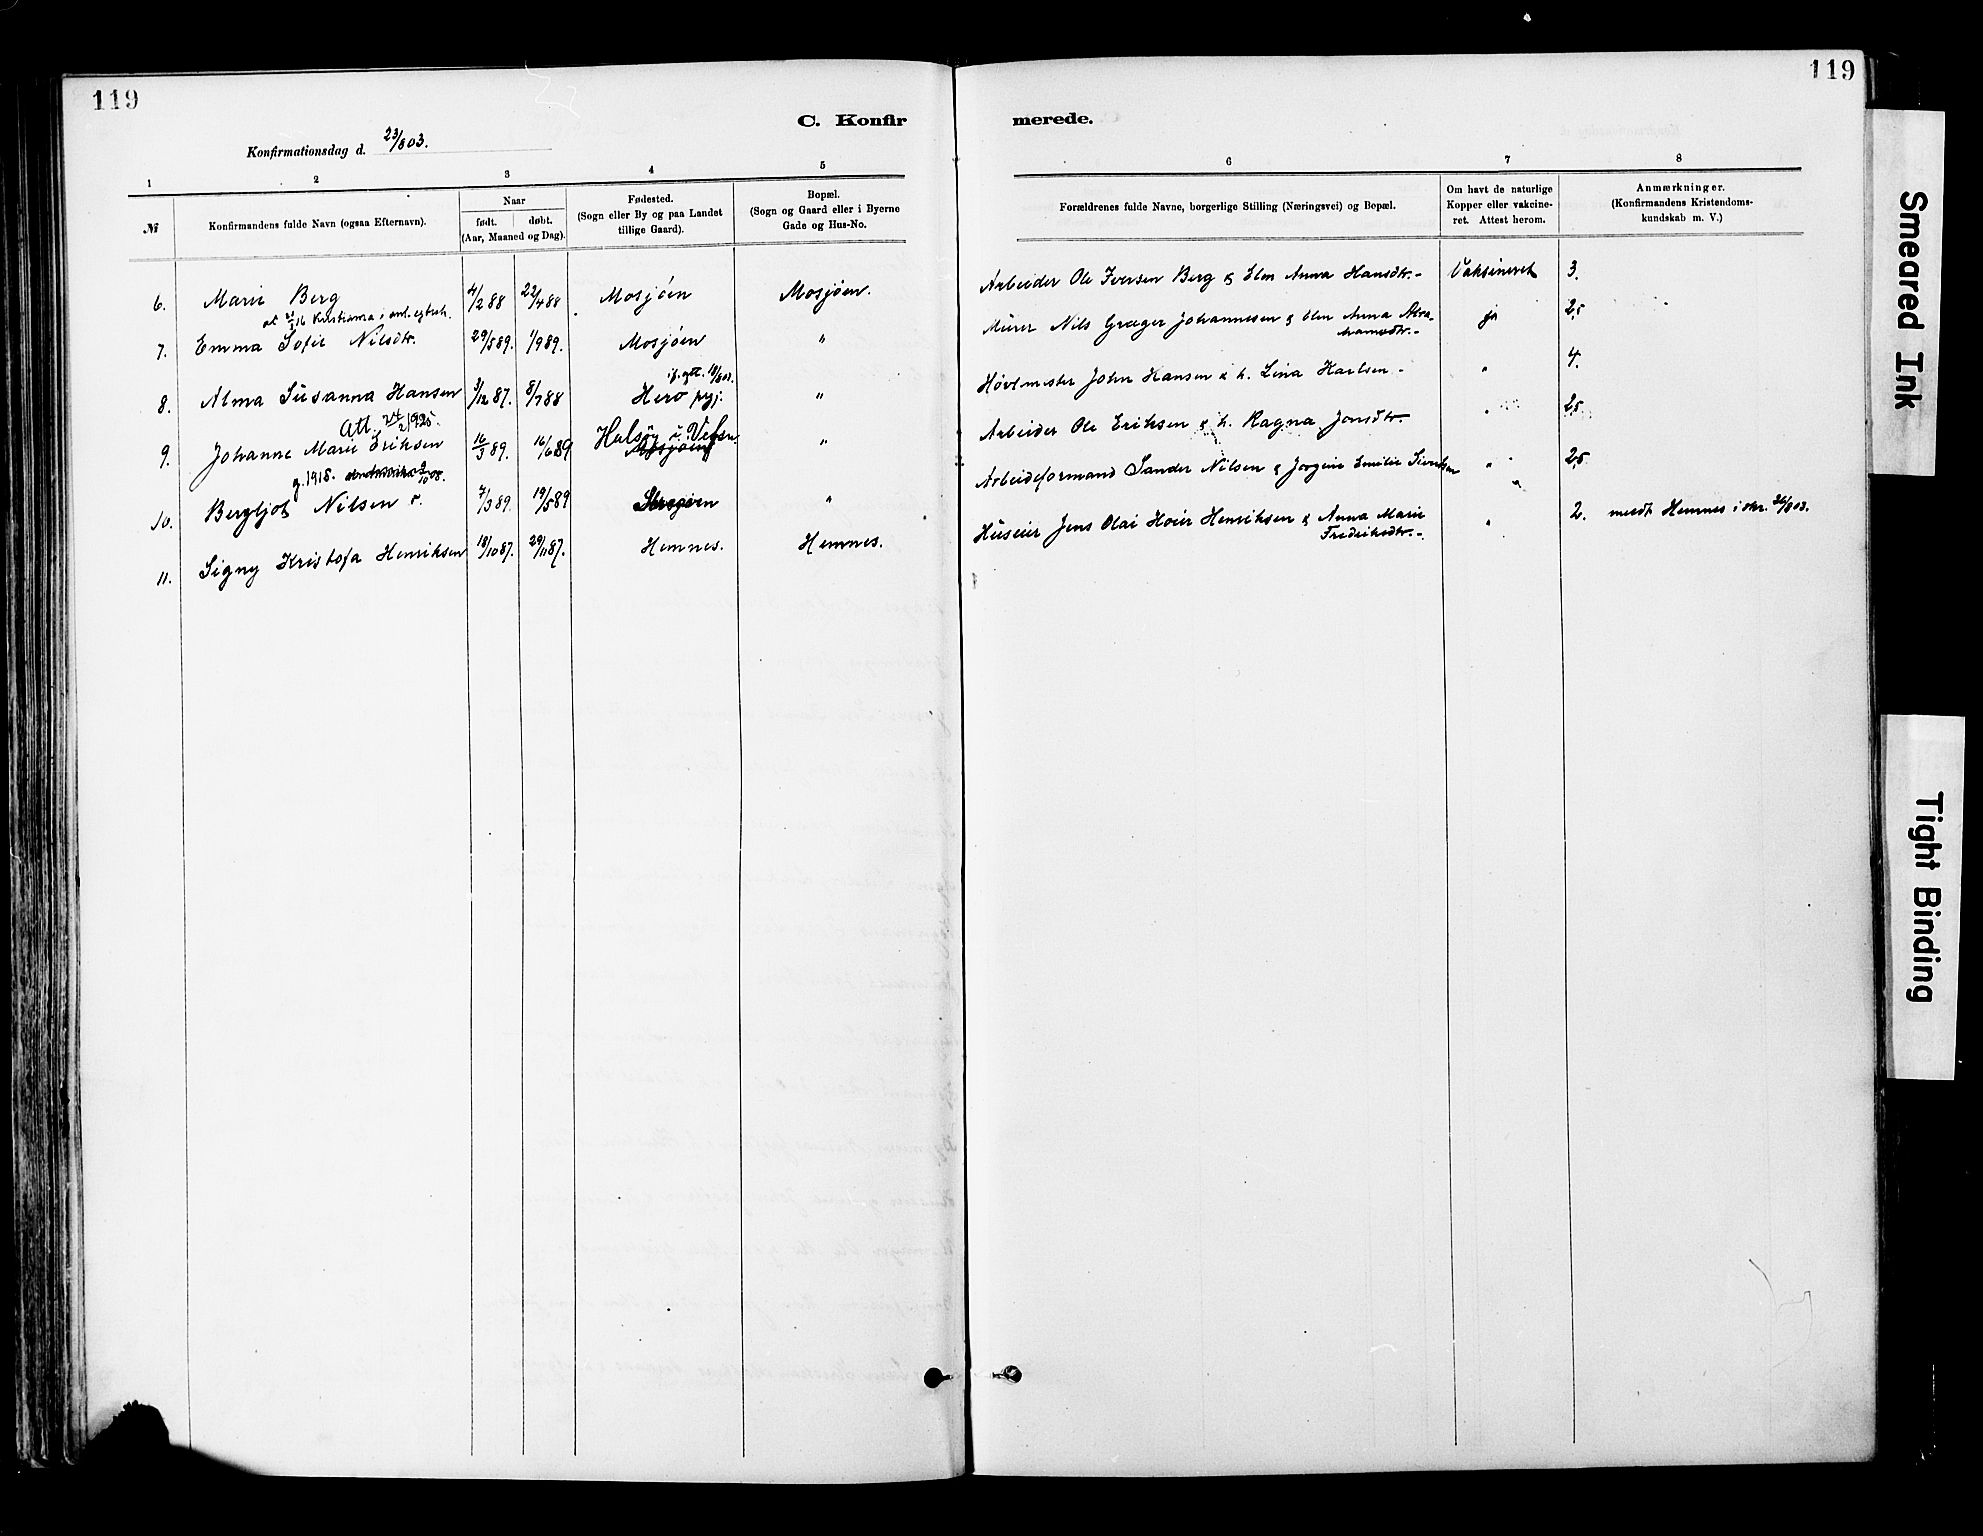 119
C. Konfir
Konfirmationsdag d. 23/8 03.
1 2 3 4 5
№
Konfirmandens fulde Navn (ogsaa Efternavn).
Naar
født. døbt.
(Aar, Maaned og Dag).
Fødested.
(Sogn eller By og paa Landet
tillige Gaard).
Bopæl.
(Sogn og Gaard eller i Byerne
Gade og Hus-No.
6. Marie Berg 4/2 88 22/4 88 Mosjöen Mosjöen.
7. Emma Sofie Nilsdtr. 29/5 89. 1/9 89. Mosjöen "
8. Alma Susanna Hansen 3/12 87. 8/7 88 Herø prgj. "
Att. 24/2 1925.
9. Johanne Marie Eriksen 16/3 89. 16/6 89 Halsöy i Vefsn "
Mosjöen
g. 1918.
10. Bergljot Nilsen 7/3 89. 19/5 89 "
11. Signy Kristofa Henriksen 18/10 87. 29/11 87. Hemnes. Hemnes.
119
merede.
6 7 8
Forældrenes fulde Navne, borgerlige Stilling (Næringsvei) og Bopæl.
Om havt de naturlige
Kopper eller vakcine-
ret. Attest herom.
Anmærkninger.
(Konfirmandens Kristendoms-
kundskab m. V.)
Arbeider Ole Iversen Berg & Elen Anna Hansdtr.- Vaksineret 3.
Murer Nils Græger Johannesen & Elen Anna Abra- ja 2,5
hamsdtr.-
Høvlmester John Hansen & h. Lina Karlsen - " 4.
Arbeider Ole Eriksen & h. Ragna Jonsdtr. " 2,5
Arbeidsformand Sander Nilsen & Jorgine Emilie Sivertsen " 2,5
Huseier Jens Olai Hoier Henriksen & Anna Marie " 2. meldt Hemnes i skr. 26/8 03.
Fredriksdtr.-
Smeared Ink
Tight Binding